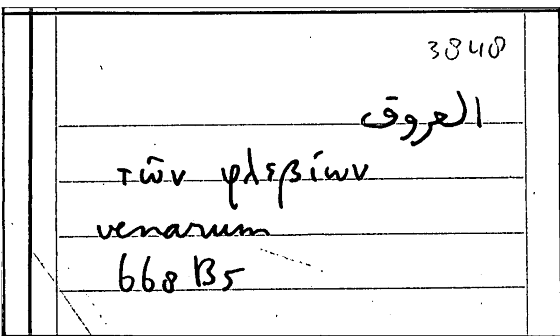 3848
العروق
τῶν φλεβίων
venarum
668 B5